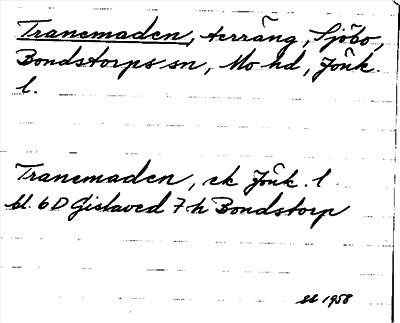 Tranemaden, terräng, Sjöbo,
Bondstorps sn, Mo hd, Jönk.
l.
Tranemaden, ek Jönk. l.
bl. 6 D Gislaved 7 h Bondstorp
1958